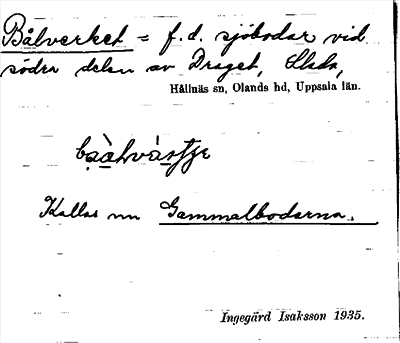 Bålverket = f. d. sjöbodar vid
södra delen av Draget,
Hållnäs sn, Olands hd, Uppsala län.
Kallas nu Gammalbodarna.
Ingegärd Isaksson 1935.